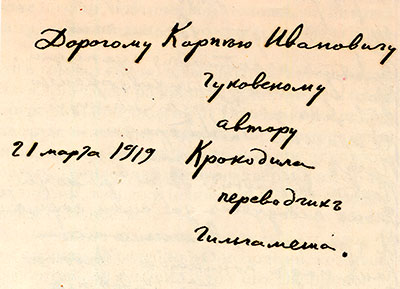 Дорогому Корнѣю Ивановичу
Чуковскому
автору
21 марта 1919 Крокодила
переводчикъ
Гильгамеша.